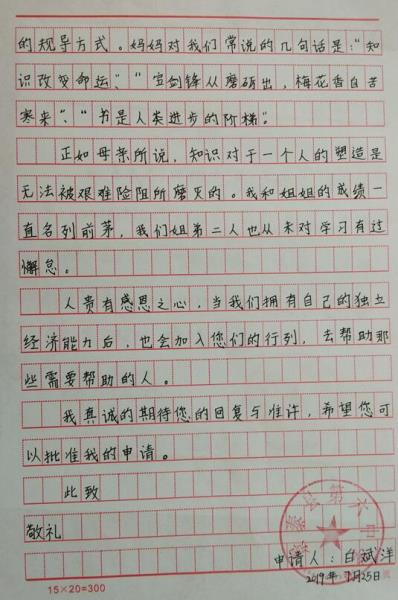 的规导方式。妈妈对我们常说的几句话是：“知
识改变命运”、“宝剑锋从磨砺出，梅花香自苦
寒来”、“书是人类进步的阶梯”。
正如母亲所说，知识对于一个人的塑造是
无法被艰难险阻所磨灭的。我和姐姐的成绩一
直名列前茅，我们姐弟二人也从未对学习有过
懈怠。
人贵有感恩之心，当我们拥有自己的独立
经济能力后，也会加入您们的行列，去帮助那
些需要帮助的人。
我真诚的期待您的回复与准许，希望您可
以批准我的申请。
此致
敬礼
县第六中
申请人：白斌洋
2019年7月25日
15×20=300